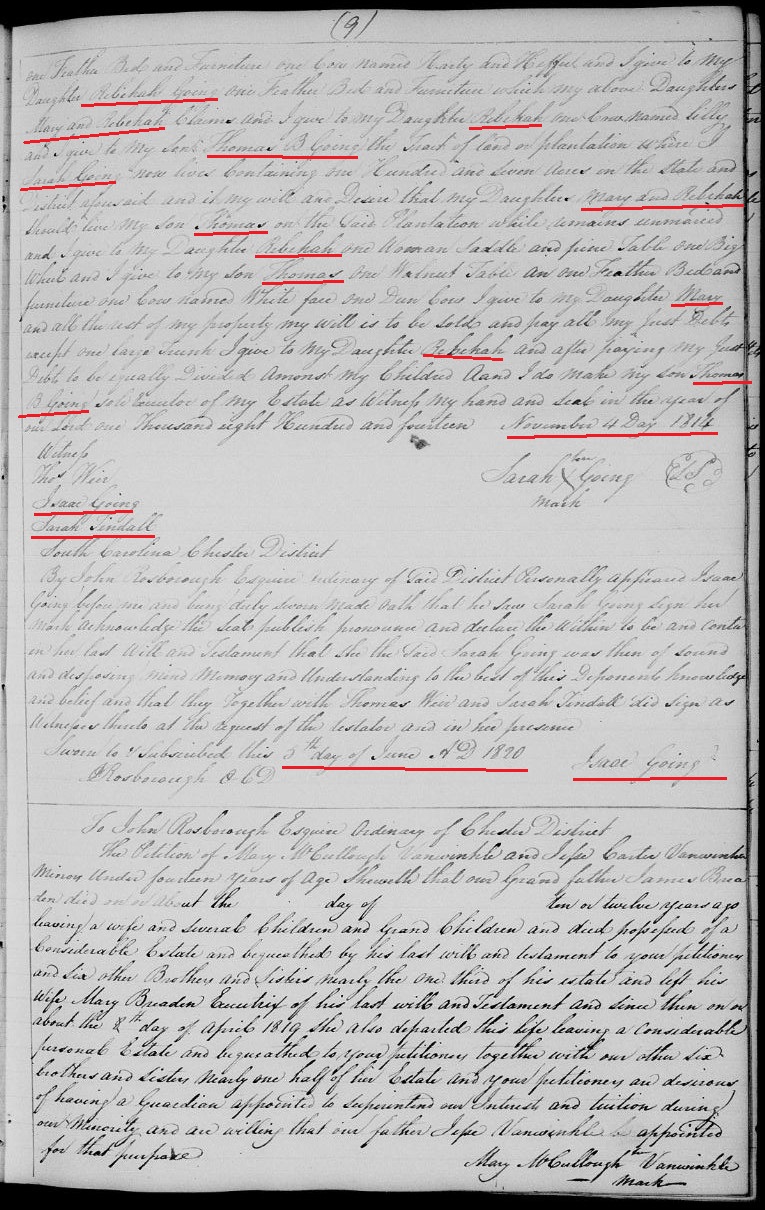 (9)
one Feather Bed and Furneture one Cow named Harty and Heffer and I give to My
Daughter Rebekah Going one Feather Bed and Furniture which my above Daughters
Mary and Rebekah Claims and I give to my Daughter Rebekah one Cow named Lilly
and I give to My Son Thomas B Going the Tract of land or plantation where I
Sarah Going now lives Containing one Hundred and seven Acres in the State and
District aforesaid and it my will and Desire that my Daughters Mary and Rebekah
Should live my son Thomas on the Said Plantation while remains unmaried
and I give to my Daughter Rebekah one Woman Saddle and pine Table one Big
Wheel and I give to my son Thomas one Walnut Table an one Feather Bed and
furneture one Cow named White face one Dun Cow I give to my Daughter Mary
and all the rest of my property my will is to be Sold and pay all my Just Debts
except one large Trunk I give to My Daughter Rebekah and after paying my Just
Debts to be equally Divided Amonst my Children Aand I do make my son Thomas
B Going Sole Executor of my Estate as Witness my hand and seal in the year of
our Lord one Thousand eight Hundred and fourteen November 4 Day 1814
Witness
Thos Weir
Sarah her Going (L.S.)
mark
Isaac Going
Sarah Tindall
South Carolina Chester District
By John Rosborough Esquire ordinary of Said District Personally appeared Isaac
Going before me and being duly sworn made oath that he saw Sarah Going sign her
mark acknowledge the seal publish pronounce and declare the Within to be and contain
in her last Will and Testament that She the Said Sarah Going was then of sound
and disposing mind Memory and Understanding to the best of this Deponents knowledge
and belief and that they Together with Thomas Weir and Sarah Tindall did sign as
Witnesses thereto at the request of the testator and in her presence
Sworn to & Subscribed this 5th day of June AD 1820
Isaac Going
Rosborough O C D
To John Rosborough Esquire Ordinary of Chester District
The Petition of Mary McCullough Vanwinkle and Jesse Carter Vanwinkle
Minors Under fourteen years of Age Sheweth that our Grand father James Brea
den died on or about the day of ten or twelve years ago
leaving a wife and several Children and Grand Children and died possesed of a
Considerable Estate and bequeathed by his last will and testament to your petitioners
and six other Brothers and Sisters nearly the one third of his estate and left his
Wife Mary Breaden Executrix of his last will and Testament and since then on or
about the 8th day of April 1819 she also departed this life leaving a Considerable
personal Estate and bequeathed to your petitioners together with our other six
brothers and sisters Nearly one half of her Estate and your petitioners are desirous
of having a Guardian appointed to Supountend our Interests and tuition during
our Minority and are willing that our father Jesse Vanwinkle be appointed
for that purpose
Mary McCullough Vanwinkle
mark